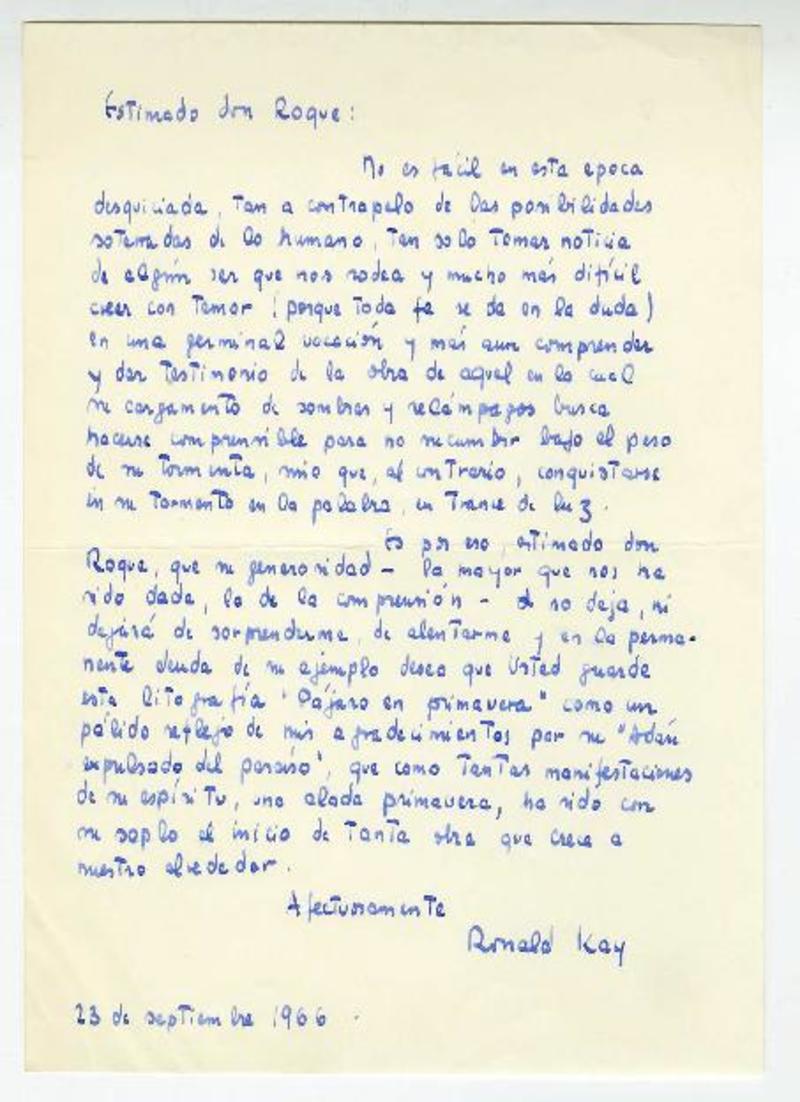 Estimado don Roque:
No es fácil en esta epoca
desquiciada, tan a contrapelo de las posibilidades
soterradas de lo humano, tan solo tomar noticia
de algún ser que nos rodea y mucho más difícil
creer con temor (porque toda fe se da en la duda)
en una germinal vocación y más aun comprender
y dar testimonio de la obra de aquel en lo cual
su cargamento de sombras y relámpagos busca
hacerse comprensible para no sucumbir bajo el peso
de su tormenta, sino que, al contrario, conquistarse
in su tormento en la palabra, en trance de luz.
Es por eso, estimado don
Roque, que su generosidad - la mayor que nos ha
sido dada, la de la comprensión - no deja, ni
dejará de sorprenderme, de alentarme y en la perma-
nente deuda de su ejemplo deseo que Usted guarde
esta litografía "Pájaro en primavera" como un
pálido reflejo de mis agradecimientos por su "Adán
expulsado del paraíso", que como tantas manifestaciones
de su espíritu, una alada primavera, ha sido con
su soplo el inicio de tanta obra que crece a
nuestro alrededor.
Afectuosamente
Ronald Kay
23 de septiembre 1966.